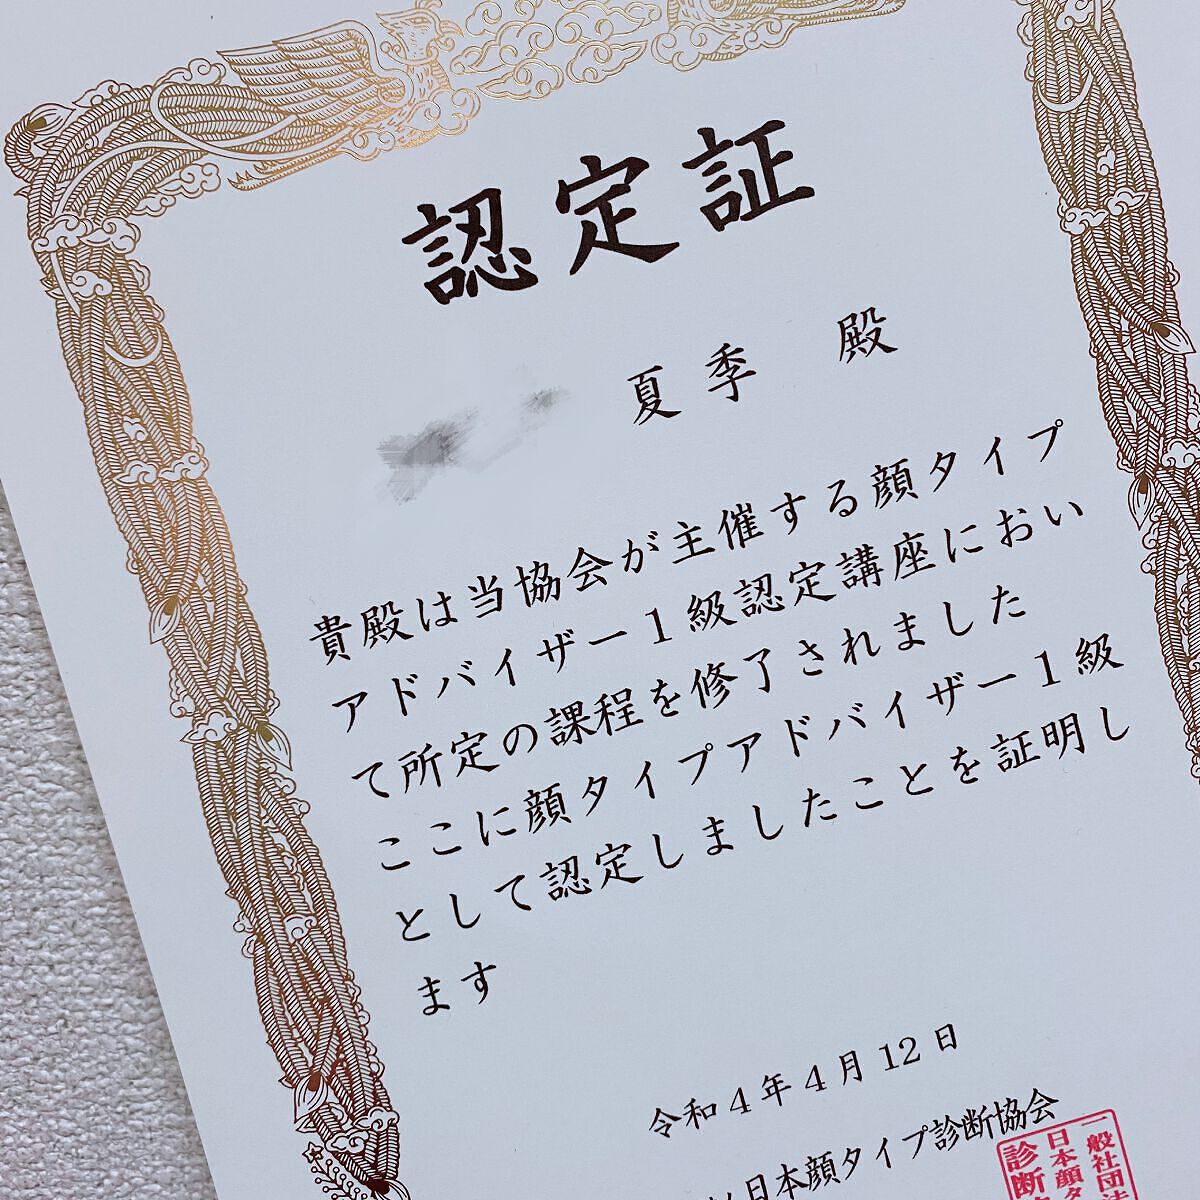 認定証
夏季 殿
貴殿は当協会が主催する顔タイプ
アドバイザー1級認定講座におい
て所定の課程を修了されました
ここに顔タイプアドバイザー1級
として認定しましたことを証明し
ます
令和4年4月12日
日本顔タイプ診断協会
一般社団法
日本顔タ
診断